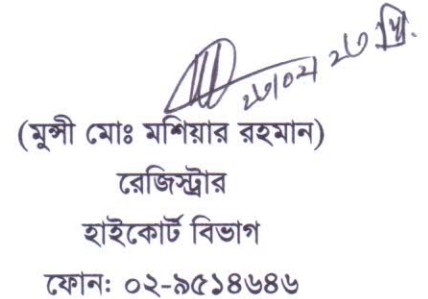 (মুন্সী মোঃ মশিয়ার রহমান)
রেজিস্ট্রার
হাইকোর্ট বিভাগ
ফোন: ০২-৯৫১৪৬৪৬